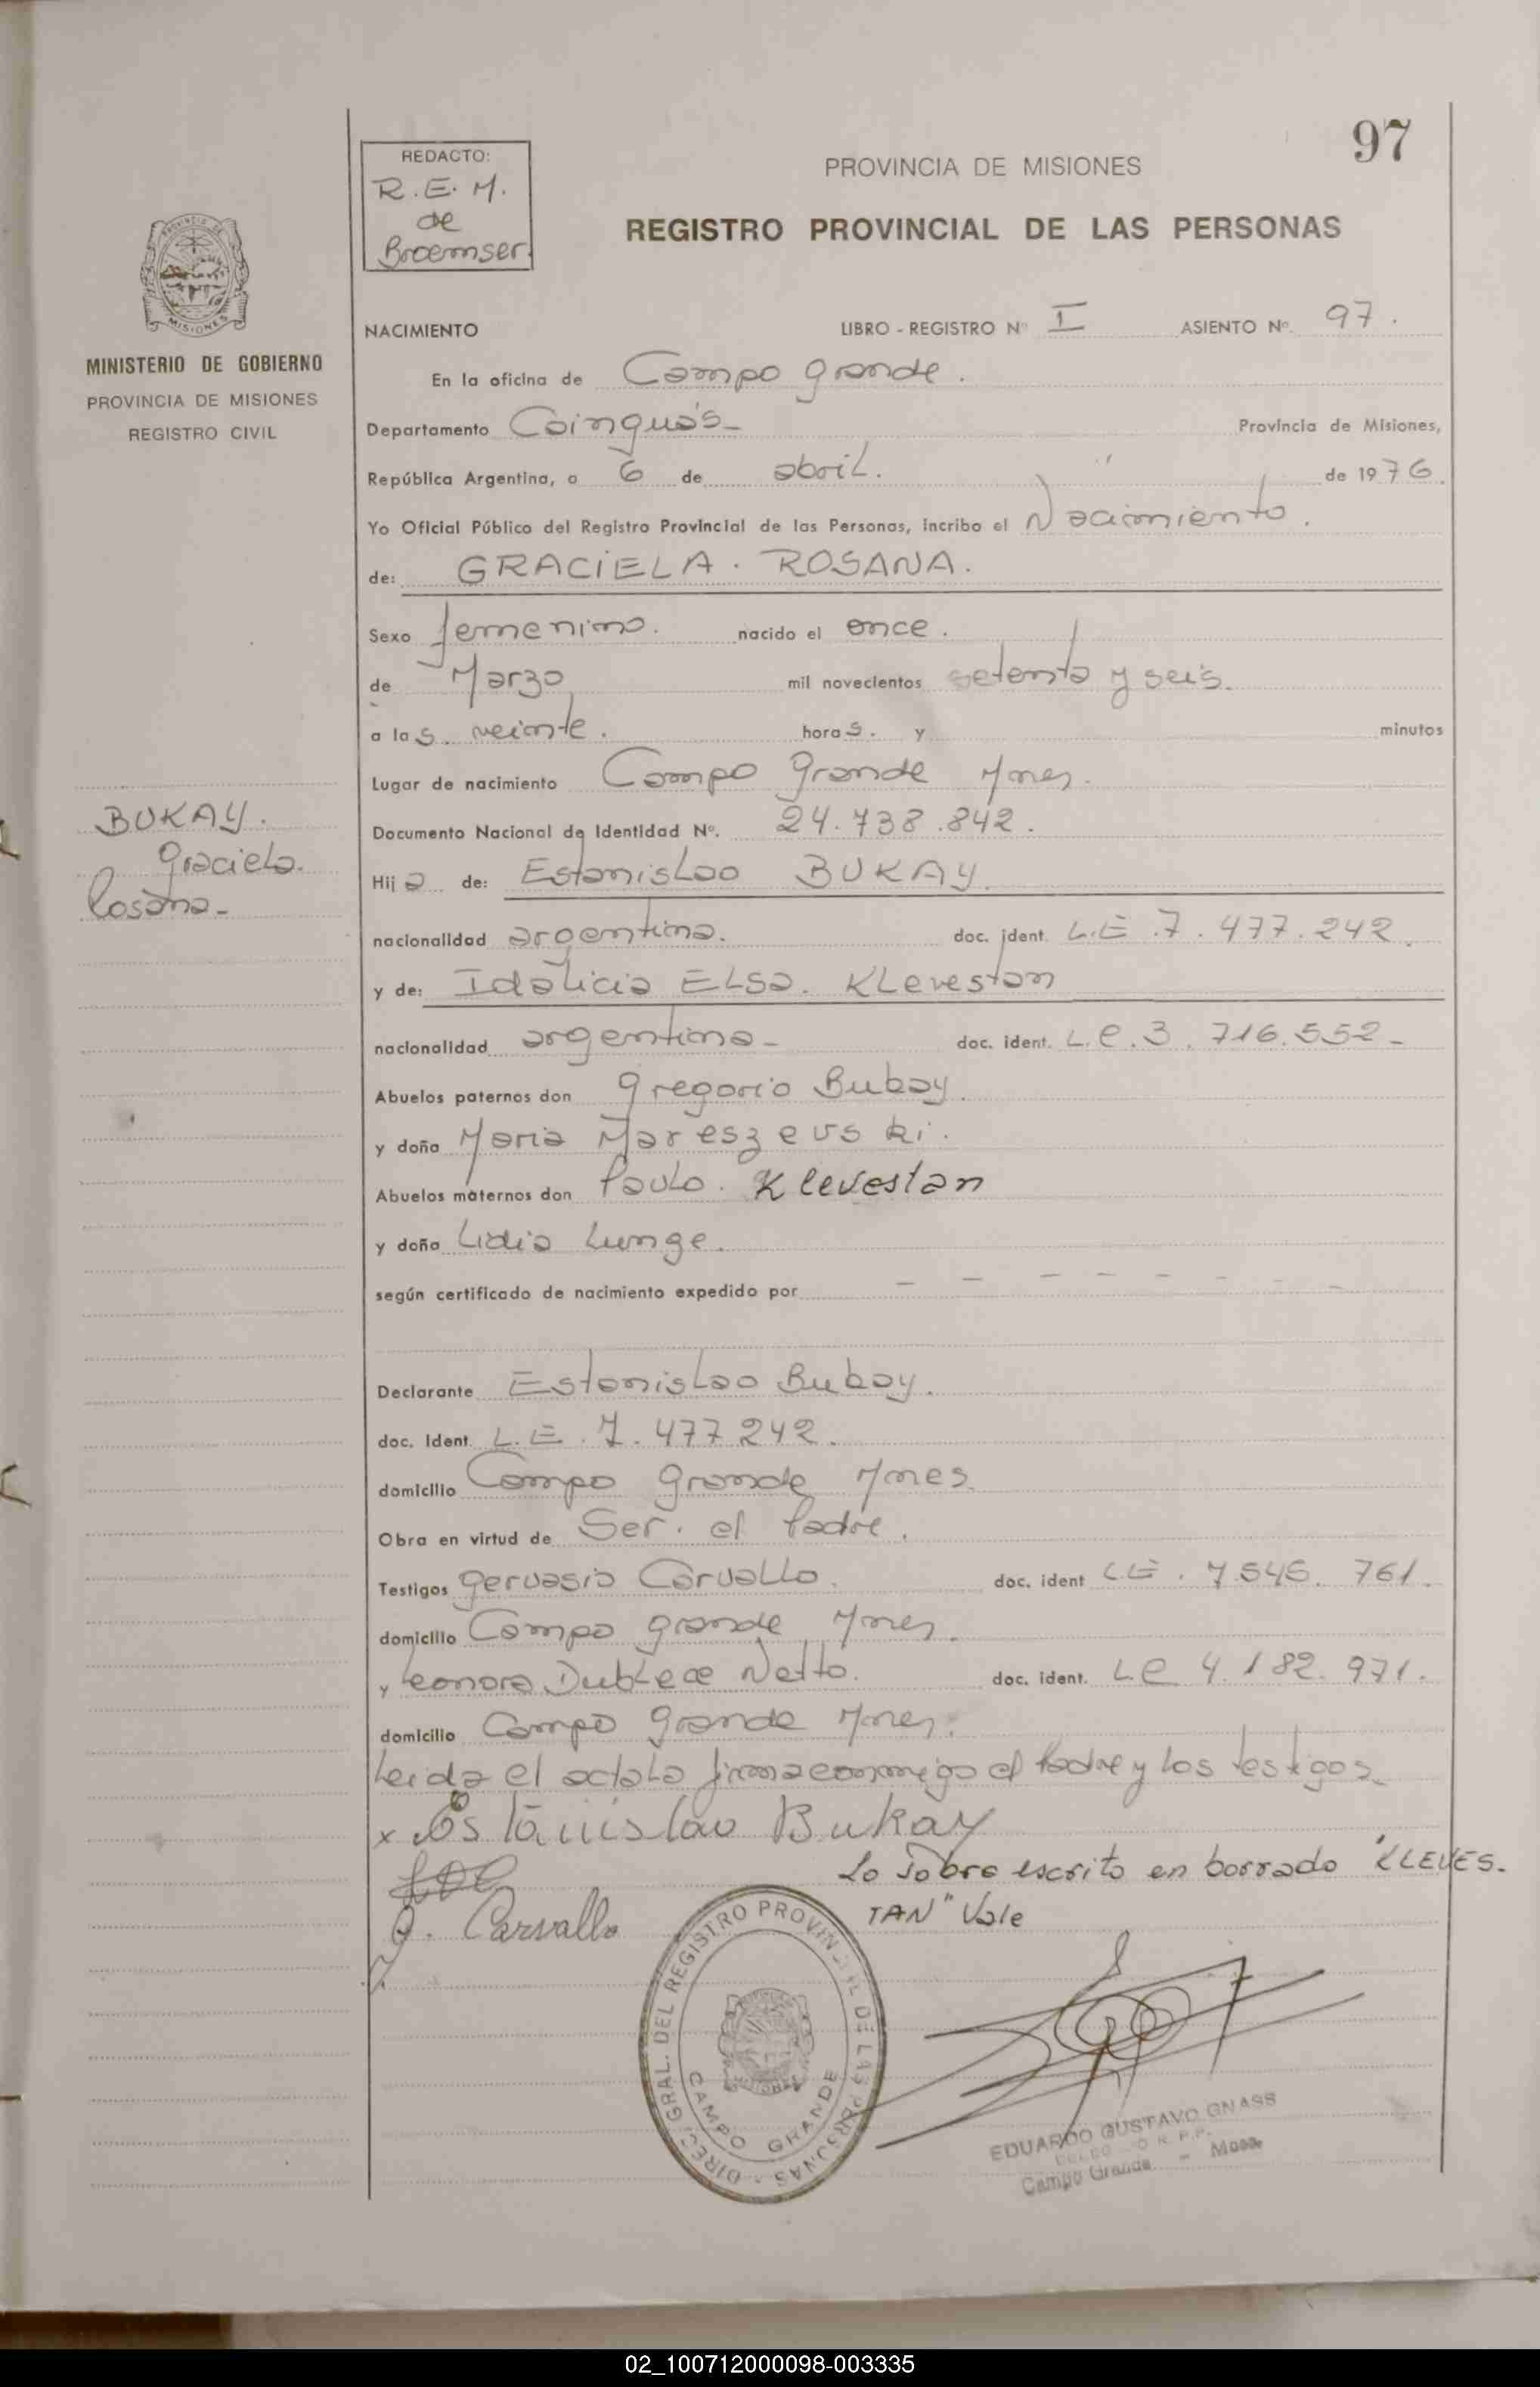 97
REDACTO:
R.E.M.
de
Broemser.
PROVINCIA DE MISIONES
REGISTRO PROVINCIAL DE LAS PERSONAS
MISIONES
MINISTERIO DE GOBIERNO
PROVINCIA DE MISIONES
REGISTRO CIVIL
NACIMIENTO LIBRO - REGISTRO Nº I ASIENTO Nº 97.
En la oficina de Campo grande.
Departamento Cainguas- Provincia de Misiones,
República Argentina, a 6 de abril. de 1976.
Yo Oficial Público del Registro Provincial de las Personas, incribo el Nacimiento.
de: GRACIELA. ROSANA.
Sexo femenino. nacido el once.
de Marzo mil novecientos setenta y seis.
a las veinte. horas. y minutos
Lugar de nacimiento Campo grande Mnes.
Documento Nacional de Identidad Nº. 24.738.842.
BUKAY.
Graciela.
Rosana-
Hija de: Estanislao BUKAY.
nacionalidad argentina. doc. ident. L.E.7.477.242.
y de: Idalicia ELsa. KLevestan
nacionalidad argentina- doc. ident. L.C.3.716.552-
Abuelos paternos don gregorio Bukay.
y doña Maria Mareszevski.
Abuelos maternos don Paulo. Klevestan
y doña Lidia Lunge.
según certificado de nacimiento expedido por - - - - - - - -
Declarante Estanislao Bukay.
doc. Ident. L.E.7.477.242.
domicilio Campo grande Mnes.
Obra en virtud de Ser. el Padre.
Testigos gervasio Carvallo. doc. ident LE. 7.545.761.
domicilio Campo grande Mnes.
y Leonora Netto. doc. ident. LC 4.182.971.
domicilio Campo grande Mnes.
Leida el acta la firma conmigo el Padre y los testigos.
x Estanislao Bukay
Lo sobre escrito en borrado "KLEVES-
TAN" Vale
G. Carvallo
DIREC. GRAL. DEL REGISTRO PROVINCIAL DE LAS PERSONAS
CAMPO GRANDE
EDUARDO GUSTAVO GNASS
Campo Grande - Mnes.
02_100712000098-003335